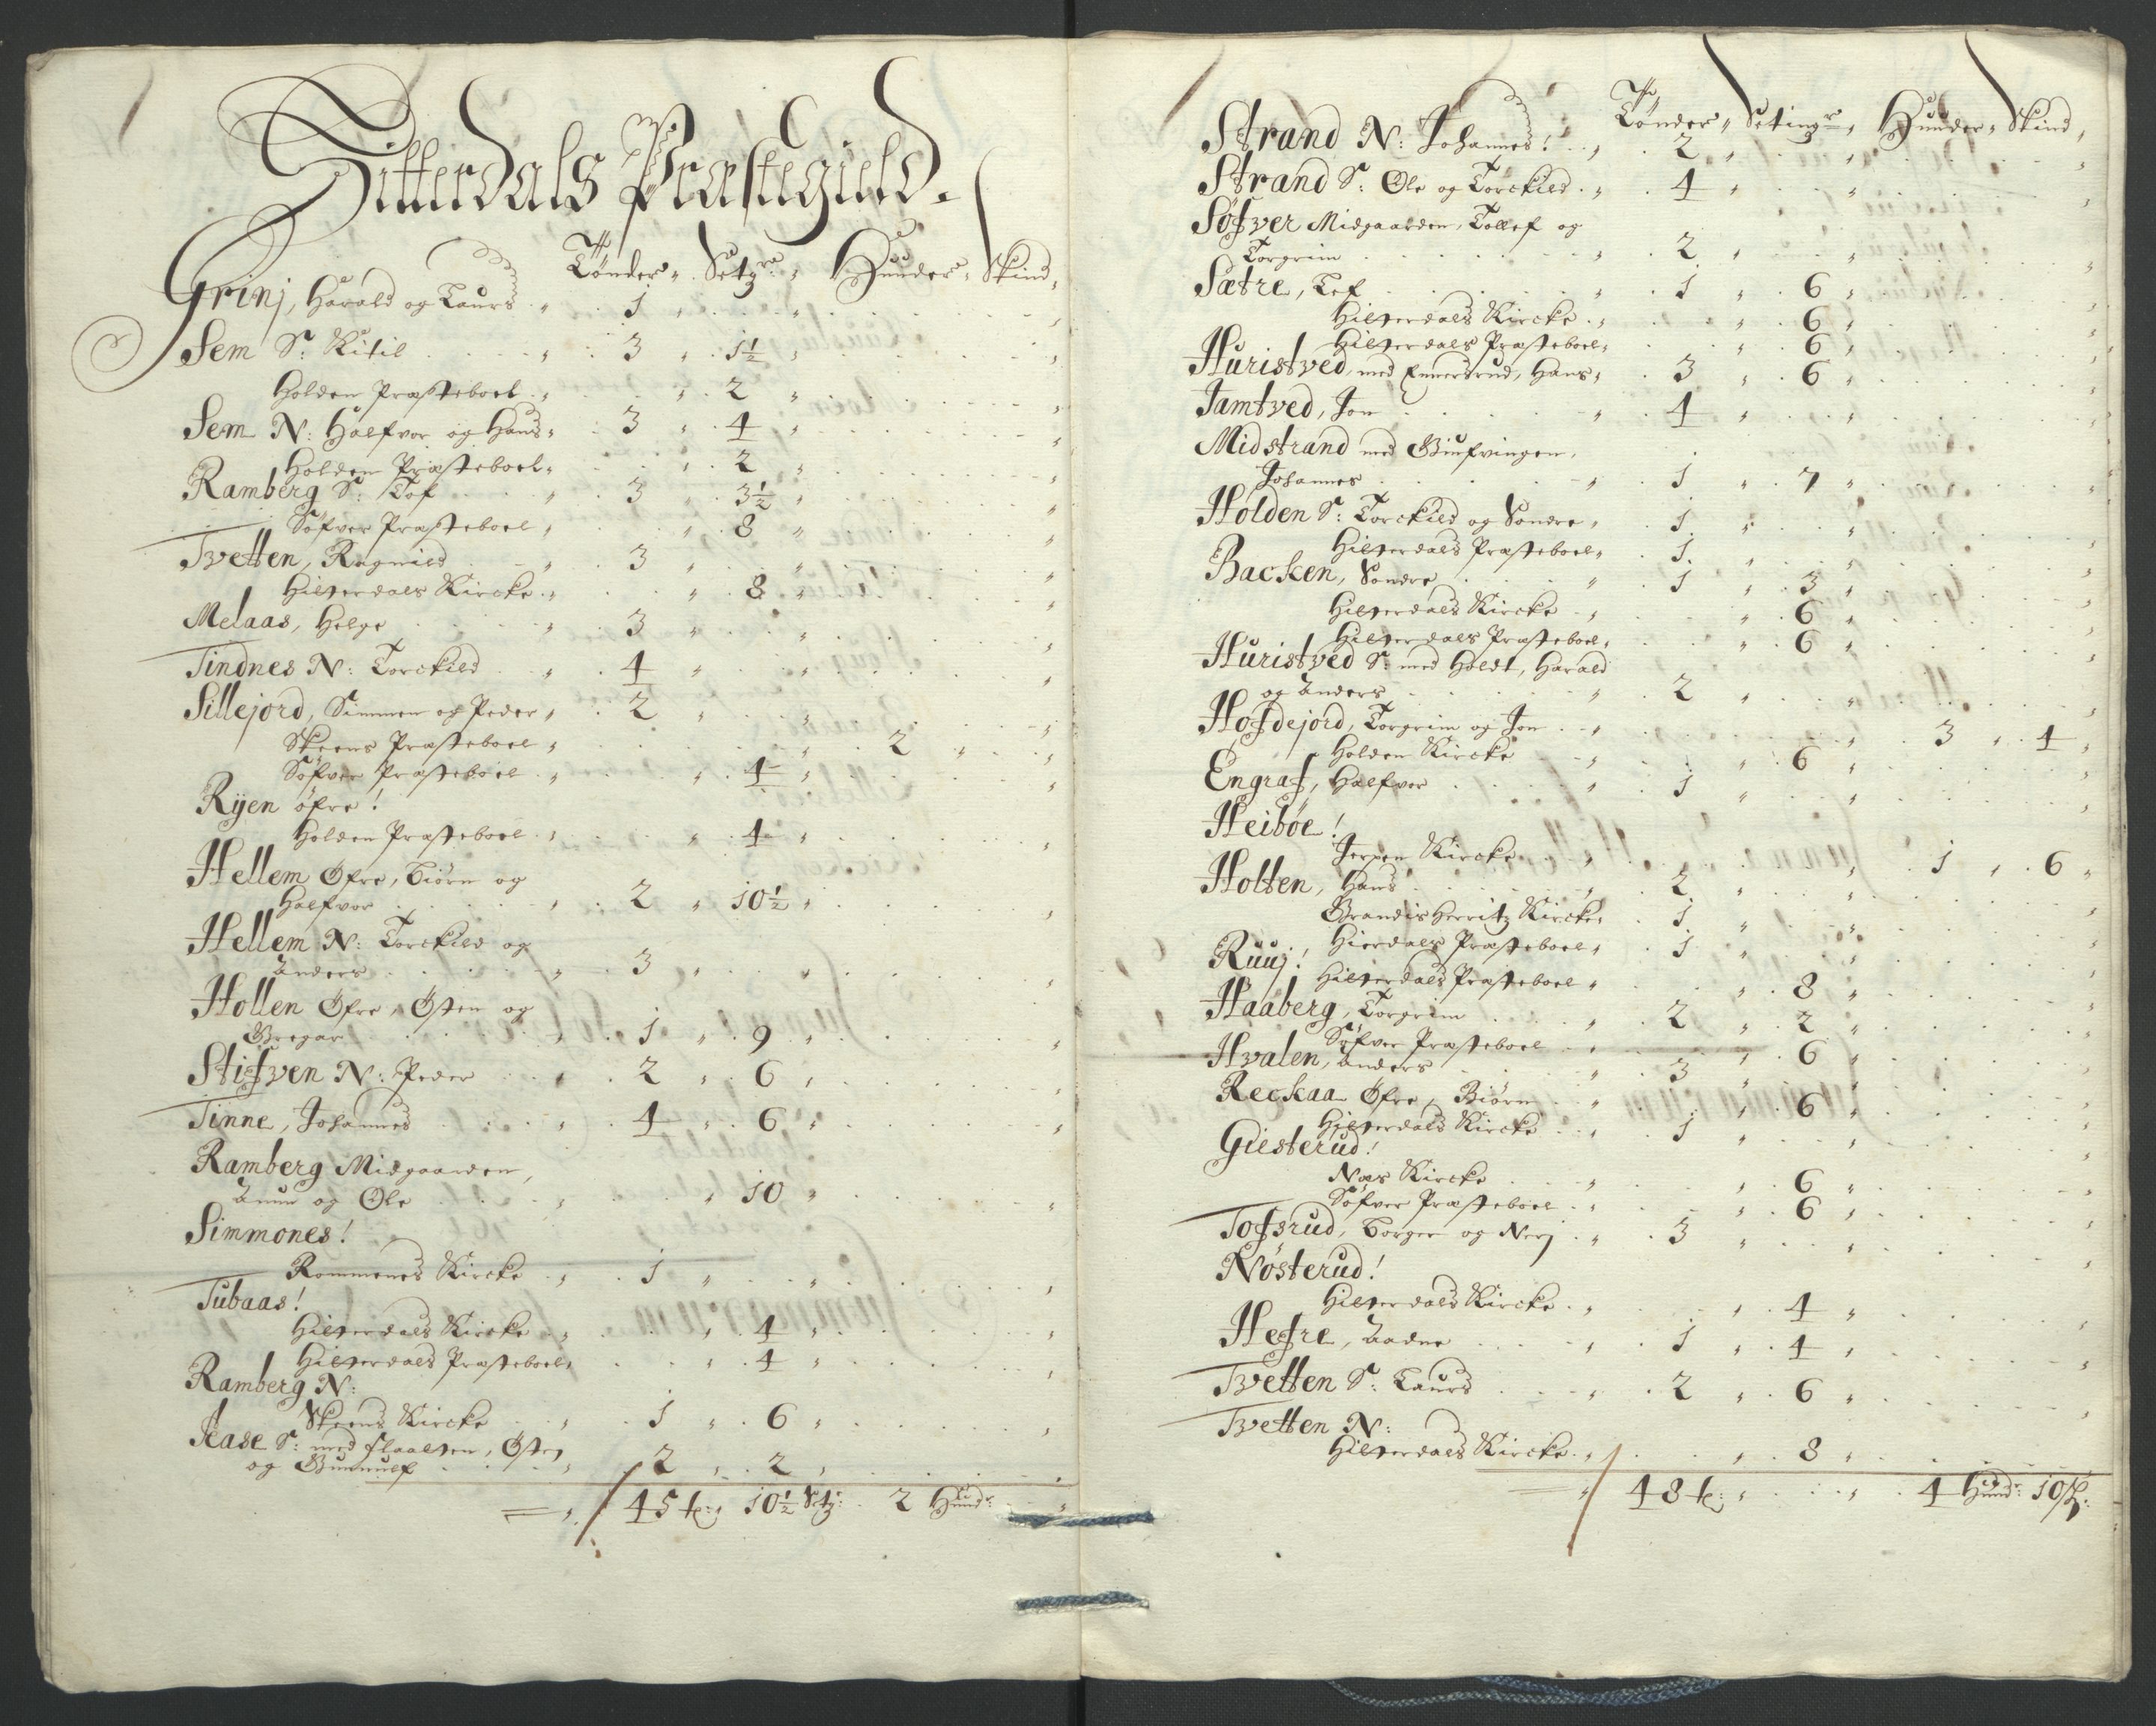 Hitterdals Præstegield.
Tønder, Setgr, Hunder, Skind,
Grinj, Harald og Laurs 1
Sem S: Kitil 3 1½
Holden Præsteboel 2
Sem N: Halfvor og Hans 3 4
Holden Præsteboel 2
Ramberg S: Tof 3 3½
Søfver Præsteboel 8
Tvetten, Ragnild 3
Hitterdals Kircke 8
Melaas, Helge 3
Tindnes N: Torckild 4
Sillejord, Simmen og Peder 2
Skeens Præsteboel 2
Søfver Præsteboel 4
Rÿen öfre!
Holden Præsteboel 4
Hellem Øfre, Biörn og
Halfvor 2 10½
Hellem N: Torckild og
Anders 3
Hollen Øfre, Østen og
Gregar 1 9
Stifven N: Peder 2 6
Tinne, Johannes 4 6
Ramberg Midgaarden,
Anun og Ole 10
Simmones!
Rommenes Kircke 1
Tubaas!
Hitterdals Kircke 4
Hitterdals Præsteboel 4
Ramberg N:
Skeens Kircke 1 6
Aase S: med Flaatten, Østen
og Gunnulf 2 2
45 t: 10½ Setg: 2 Hund:
Tønder, Setingr, Hunder, Skind,
Strand N: Johannes! 2
Strand S: Ole og Torckild 4
Søfver Midgaarden, Tollef og
Torgrim 2
Sætre, Lef 1 6
Hitterdals Kircke 6
Hitterdals Præsteboel 6
Huristved, med Ennersrud, Hans 3 6
Jamtved, Jon 4
Midstrand med Giufvingen,
Johannes 1 7
Holden S: Torckild og Sondre 1
Hitterdals Præsteboel 1
Backen, Sondre 1 3
Hitterdals Kircke 6
Hitterdals Præsteboel 6
Huristved S: med Holdt, Harald
og Anders 2
Hofdejord, Torgrim og Jon 3 4
Holden Kircke 6
Engraf, Halfvor 1
Heibøe!
Jerpen Kircke 1 6
Holten, Hans 2
Brandis Herritz Kircke 1
Hierdals Præsteboel 1
Ruuj!
Hitterdals Præsteboel 8
Haaberg, Torgrim 2 2
Søfver Præsteboel 6
Hvalen, Anders 3
Reckaa Øfre, Biörn 6
Hitterdals Kircke 1
Giesterud!
Næs Kircke 6
Søfver Præsteboel 6
Tofsrud, Borger og Nerj 3
Nösterud!
Hitterdals Kircke 4
Hefre, Aadne 1 4
Tvetten S: Laurs 2 6
Tvetten N:
Hitterdals Kircke 8
48 t: 4 Hund: 10 sk: